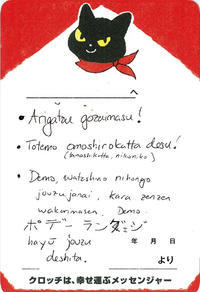 へ
• Arigatzu gozuimasu!
• Totemo omoshirokatta desu!
(tanoshikatta, nikoniko)
• Demo, watashino nihongo
jouzu janai, kara zenzen
wakarimasen. Demo
ポデーランダジ
hayū jouzu
deshita.
年 月 日
より
クロッチは、幸せ運ぶメッセンジャー